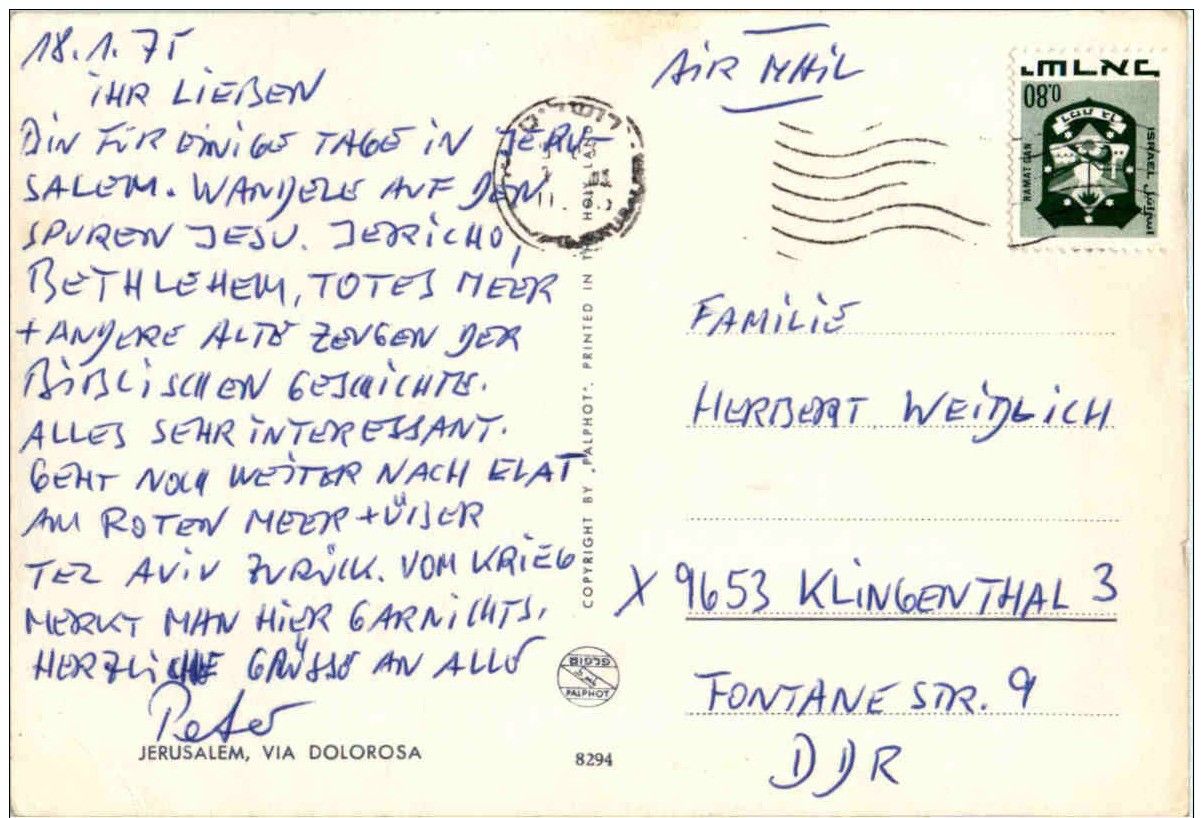 18.1.75
IHR LIEBEN
BIN FÜR EINIGE TAGE IN JERU-
SALEM. WANDELE AUF DEN
SPUREN JESU. JERICHO,
BETHLEHEM, TOTES MEER
+ ANDERE ALTE ZEUGEN DER
BIBLISCHEN GESCHICHTE.
ALLES SEHR INTERESSANT.
GEHT NOCH WEITER NACH ELAT
AM ROTEN MEER + ÜBER
TEL AVIV ZURÜCK. VOM KRIEG
MERKT MAN HIER GARNICHTS.
HERZLICHE GRÜSSE AN ALLE
Peter
JERUSALEM, VIA DOLOROSA
COPYRIGHT BY "PALPHOT". PRINTED IN THE HOLY LAND
PALPHOT
8294
ירושלים
JERUSALEM
AIR MAIL
ישראל
0.80
RAMAT GAN
ISRAEL
اسرائيل
FAMILIE
HERBERT WEIDLICH
X 9653 KLINGENTHAL 3
FONTANE STR. 9
DDR